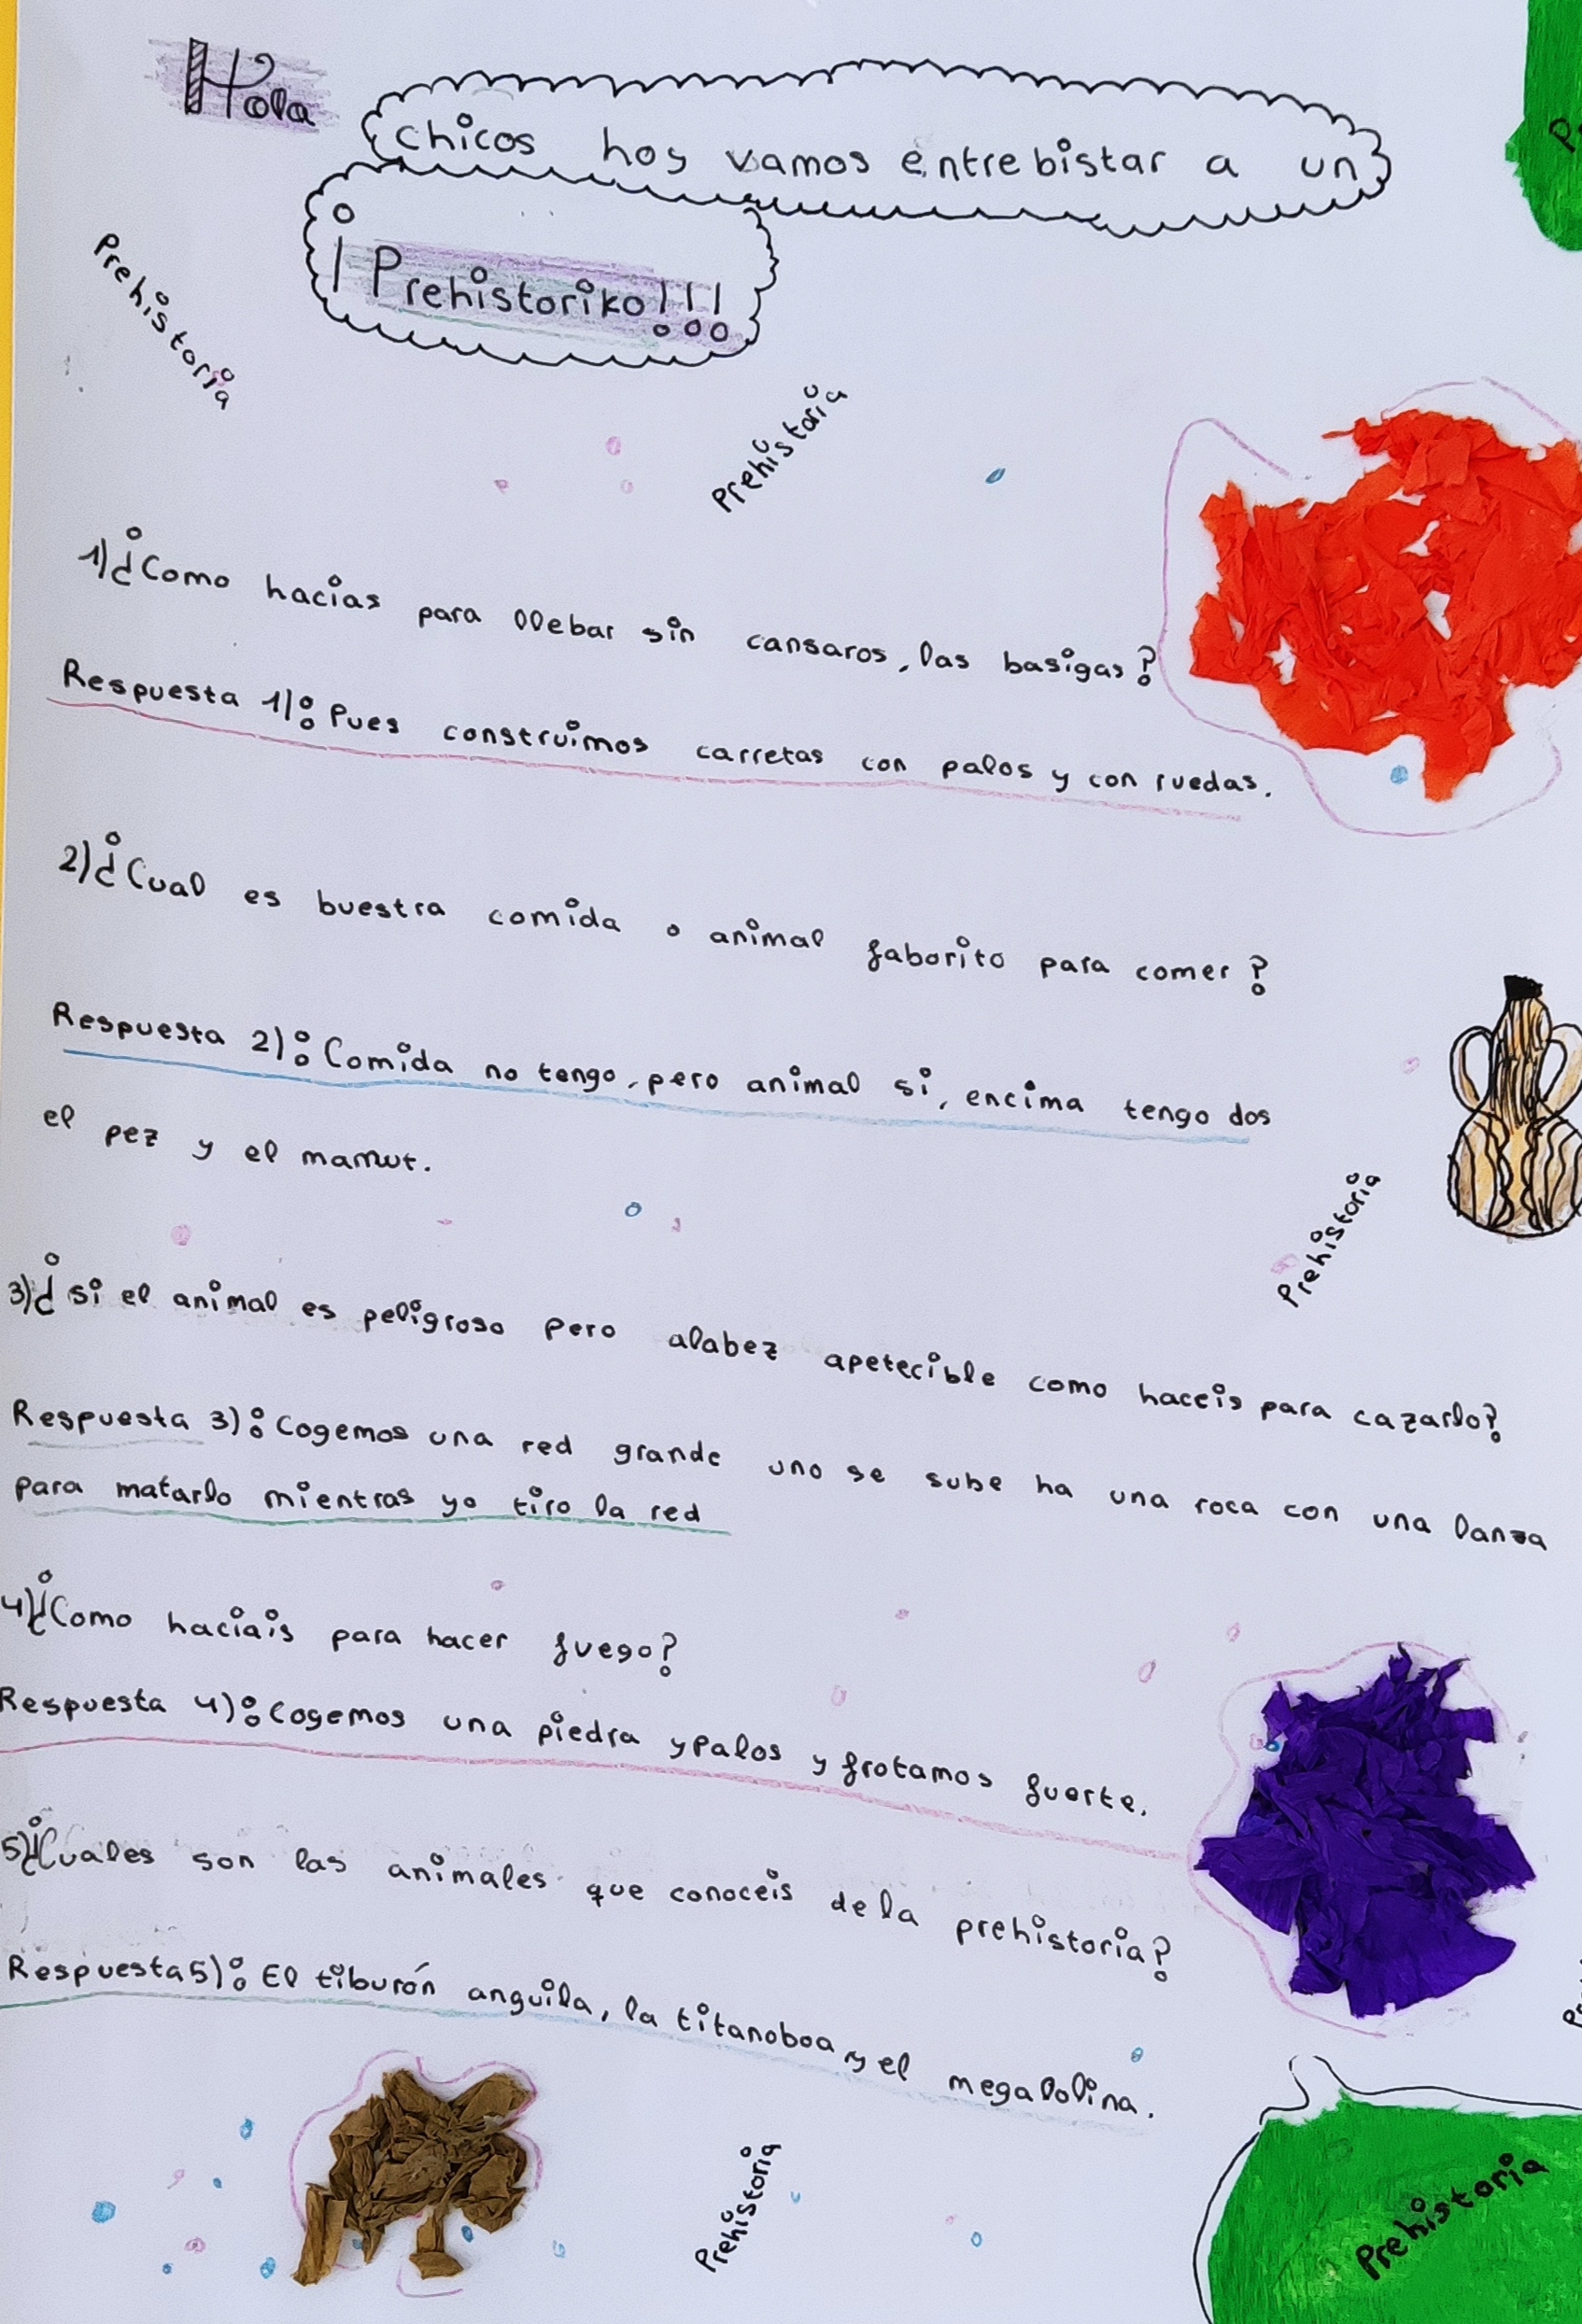 Hola
chicos hoy vamos entrebistar a un
¡Prehistoriko!!!
Prehistoria
Prehistoria
1)¿Como hacias para llebar sin cansaros, las basigas?
Respuesta 1): Pues construimos carretas con palos y con ruedas.
2)¿Cual es buestra comida o animal faborito para comer?
Respuesta 2): Comida no tengo, pero animal si, encima tengo dos
el pez y el mamut.
Prehistoria
3)¿si el animal es peligroso pero alabez apetecible como haceis para cazarlo?
Respuesta 3): Cogemos una red grande uno se sube ha una roca con una lanza
para matarlo mientras yo tiro la red
4)¿Como haciais para hacer fuego?
Respuesta 4): Cogemos una piedra y palos y frotamos fuerte.
5)¿Cuales son las animales que conoceis de la prehistoria?
Respuesta 5): El tiburón anguila, la titanoboa y el megalolina.
Prehistoria
Prehistoria